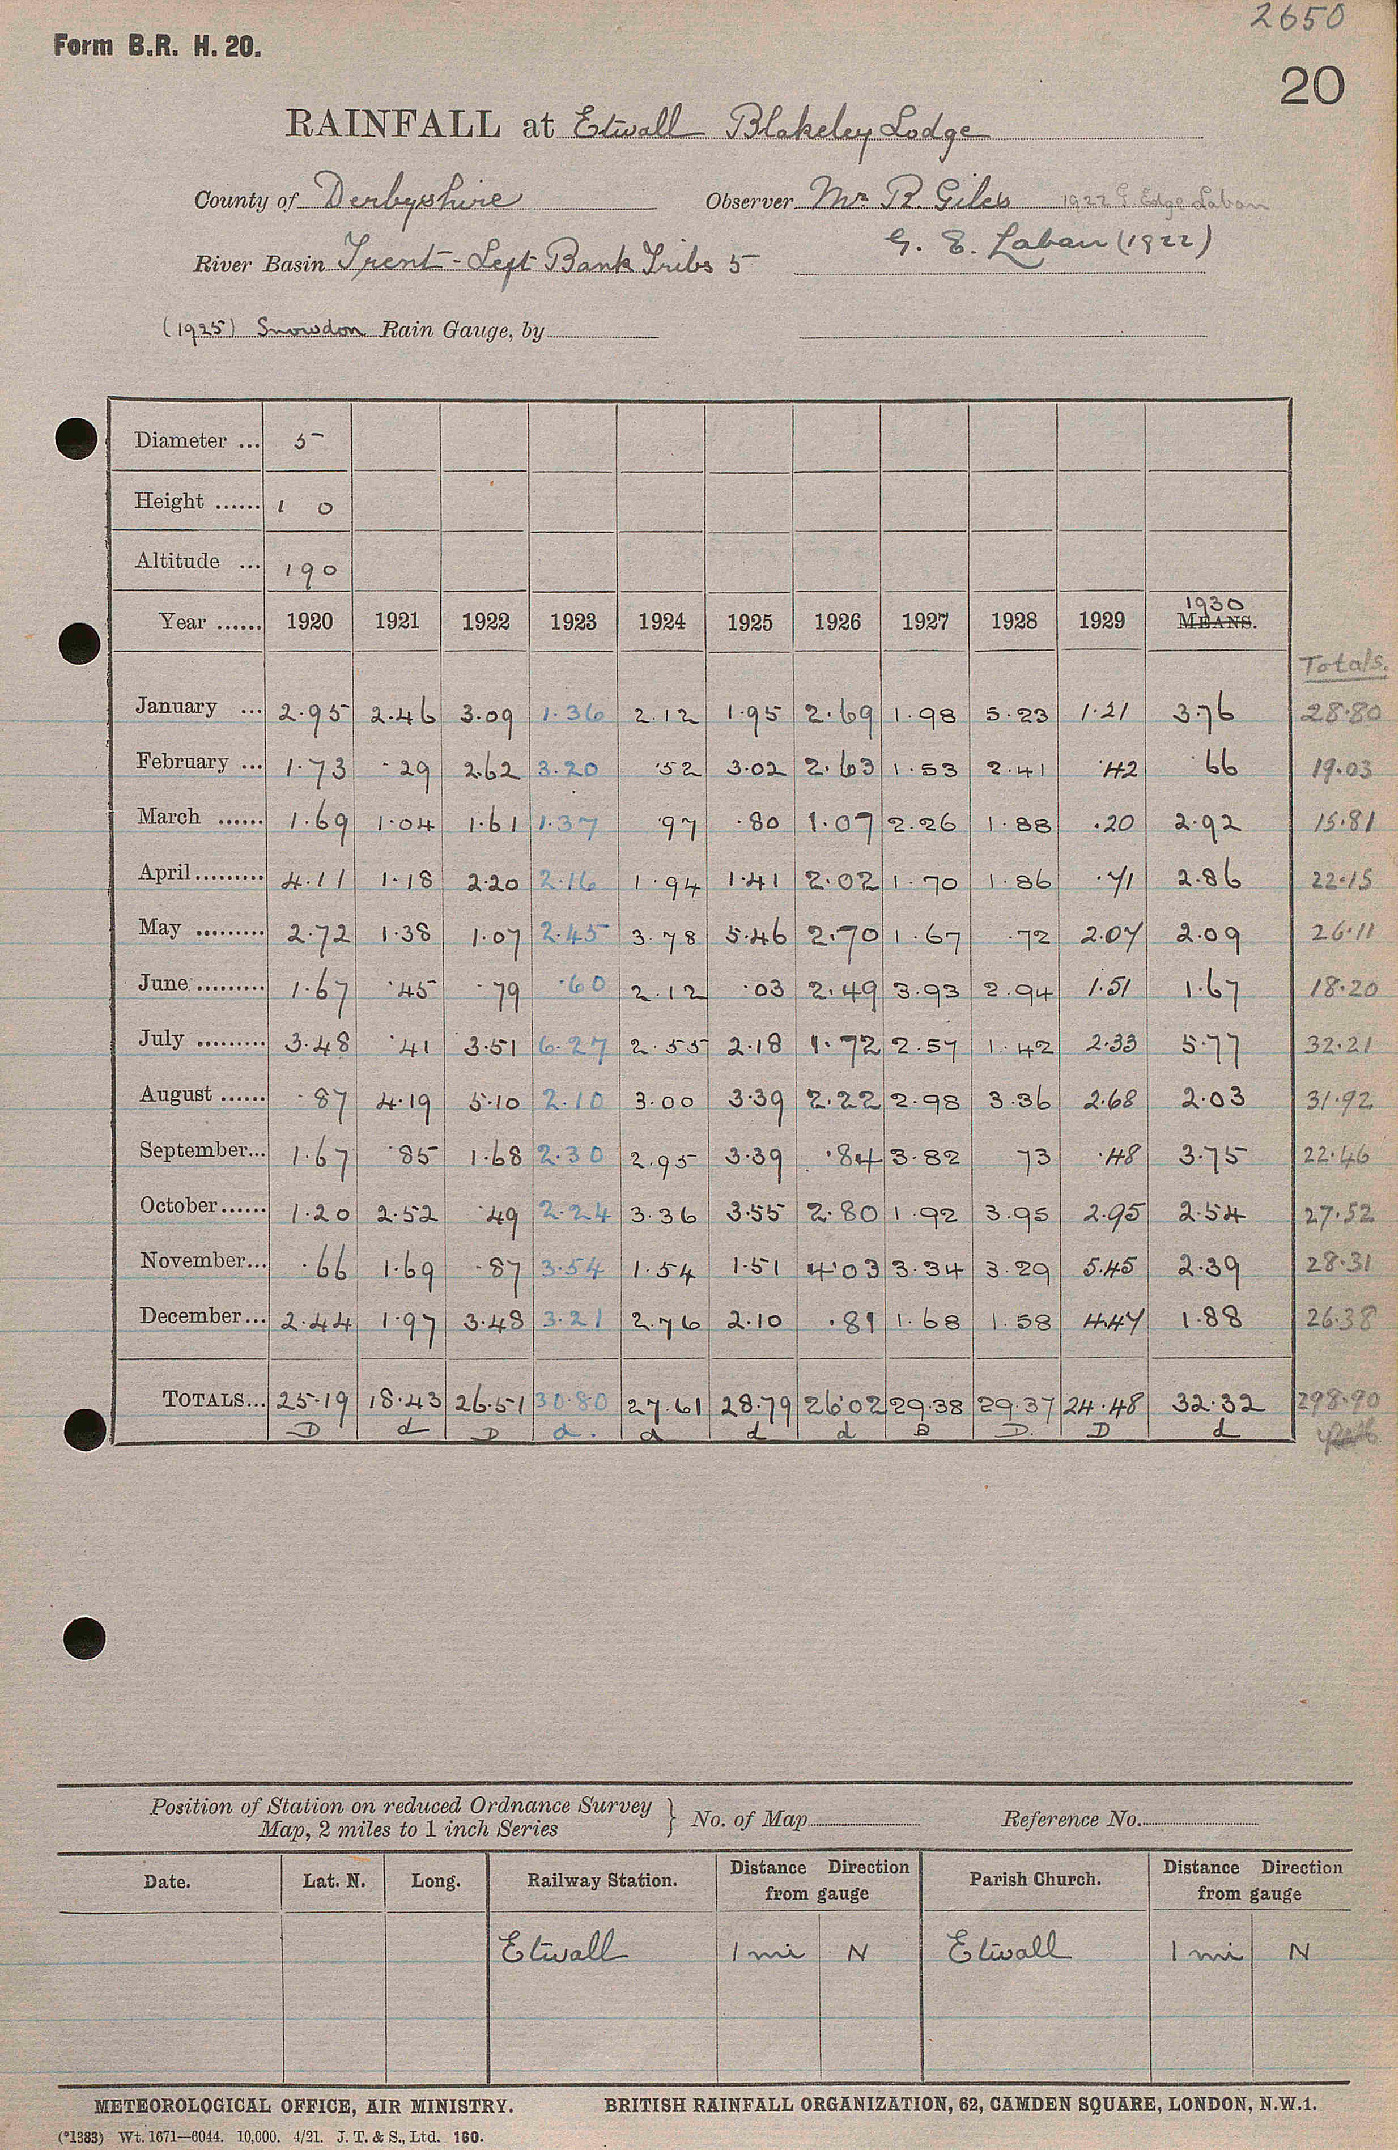 2650
Form B.R. H. 20.
20
RAINFALL at Etwall Blakeley Lodge
County of Derbyshire Observer Mr R. Giles 1922 G. Edge Laban
G. E. Laban (1922)
River Basin Trent - Left Bank Tribs 5
(1925) Snowdon Rain Gauge, by
Diameter ... 5
Height ...... 1 0
Altitude ... 190
Year ...... 1920 1921 1922 1923 1924 1925 1926 1927 1928 1929 1930 MEANS.
Totals.
January ... 2.95 2.46 3.09 1.36 2.12 1.95 2.69 1.98 5.23 1.21 3.76 28.80
February ... 1.73 .29 2.62 3.20 .52 3.02 2.63 1.53 2.41 .42 .66 19.03
March ...... 1.69 1.04 1.61 1.37 .97 .80 1.07 2.26 1.88 .20 2.92 15.81
April ......... 4.11 1.18 2.20 2.16 1.94 1.41 2.02 1.70 1.86 .71 2.86 22.15
May ......... 2.72 1.38 1.07 2.45 3.78 5.46 2.70 1.67 .72 2.07 2.09 26.11
June ......... 1.67 .45 .79 .60 2.12 .03 2.49 3.93 2.94 1.51 1.67 18.20
July ......... 3.48 .41 3.51 6.27 2.55 2.18 1.72 2.57 1.42 2.33 5.77 32.21
August ...... .87 4.19 5.10 2.10 3.00 3.39 2.22 2.98 3.36 2.68 2.03 31.92
September... 1.67 .85 1.68 2.30 2.95 3.39 .84 3.82 73 .48 3.75 22.46
October ...... 1.20 2.52 .49 2.24 3.36 3.55 2.80 1.92 3.95 2.95 2.54 27.52
November... .66 1.69 .87 3.54 1.54 1.51 4.03 3.34 3.29 5.45 2.39 28.31
December... 2.44 1.97 3.48 3.21 2.76 2.10 .81 1.68 1.58 4.47 1.88 26.38
TOTALS... 25.19 18.43 26.51 30.80 27.61 28.79 26.02 29.38 29.37 24.48 32.32 298.90
D d D d. d d d B D. D d
Position of Station on reduced Ordnance Survey
Map, 2 miles to 1 inch Series } No. of Map Reference No.
Date. Lat. N. Long. Railway Station. Distance Direction from gauge Parish Church. Distance Direction from gauge
Etwall 1 mi N Etwall 1 mi N
METEOROLOGICAL OFFICE, AIR MINISTRY. BRITISH RAINFALL ORGANIZATION, 62, CAMDEN SQUARE, LONDON, N.W.1.
(*1383) Wt. 1671—6044. 10,000. 4/21. J. T. & S., Ltd. 160.